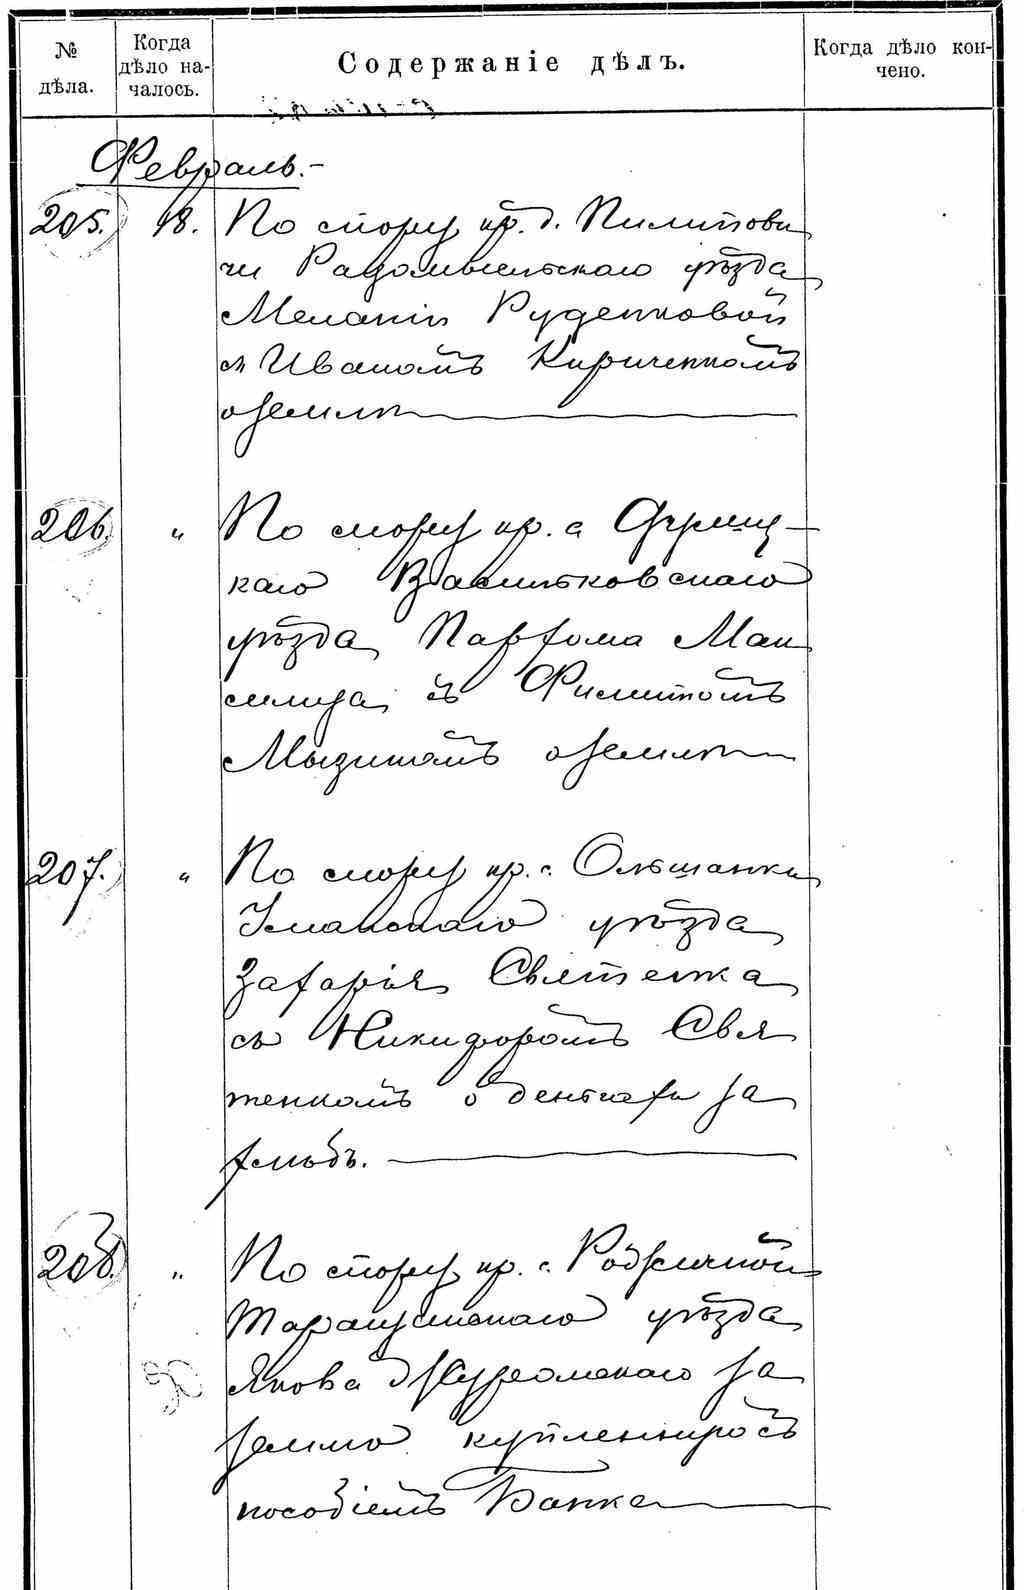 № дѣла.
Когда дѣло на-чалось.
Содержаніе дѣлъ.
Когда дѣло кон-чено.
Февраль.-
205. 18. По спору кр. д. Пилипови
чи Радомысльскаго уѣзда
Меланіи Руденковой
съ Иваномъ Кириченкомъ
о землѣ
206. " По спору кр. с.
каго Васильковскаго
уѣзда Пархома Мак
симца съ Филипомъ
Мызикомъ о землѣ
207. " По спору кр. с. Ольшанки
Уманскаго уѣзда
Захарія Святенка
съ Никифоромъ Свя
тенкомъ о деньгахъ за
хлѣбъ.
208. " По спору кр. с.
Таращанскаго уѣзда
Якова за
землю купленную съ
пособіемъ Банка